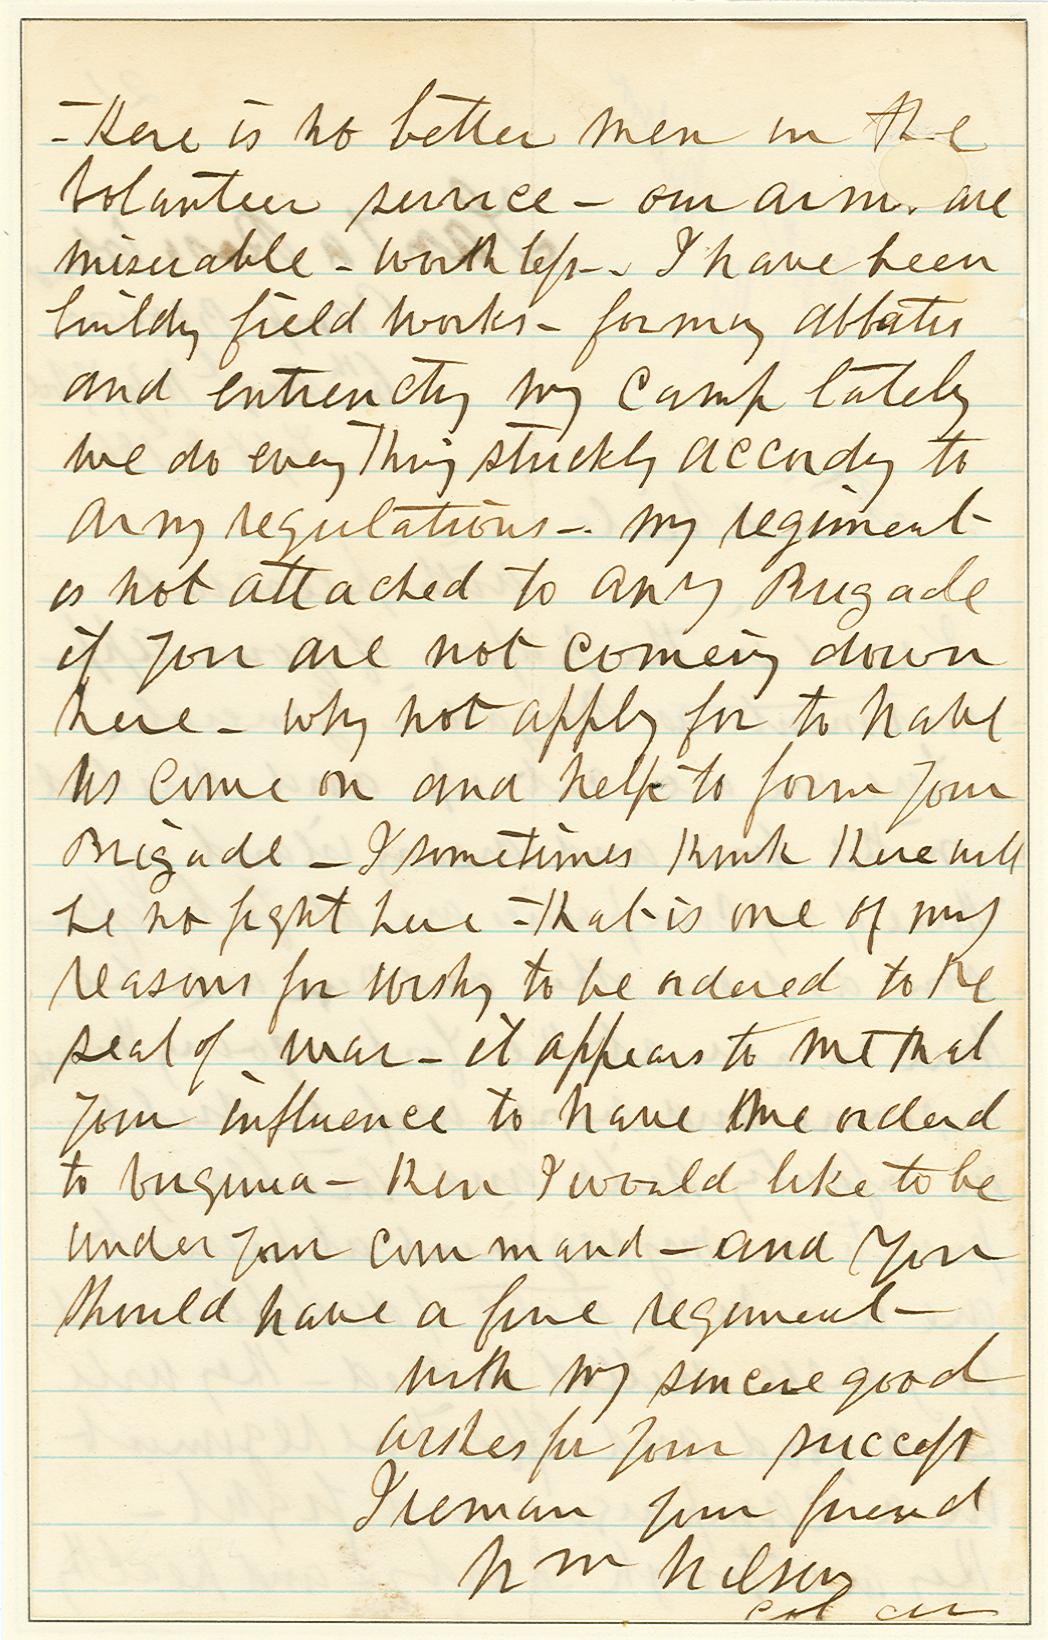 - There is no better men in the
Volunteer service - our arms. are
miserable - worthless - I have been
buildg field works - formng abbatis
and entrenchg my Camp lately
we do every thing strickly accordg to
Army regulations - my regiment
is not attached to any Brigade
if you are not comeing down
here - why not apply for to have
us come on and help to form your
Brigade - I sometimes think there will
be no fight here - that is one of my
reasons for wishg to be ordered to the
seat of war - it appears to me that
your influence to have me ordered
to Virginia - then I would like to be
under your command - and you
should have a fine regiment -
with my sincere good
wishes for your success
I remain your friend
Wm Wilson
Col